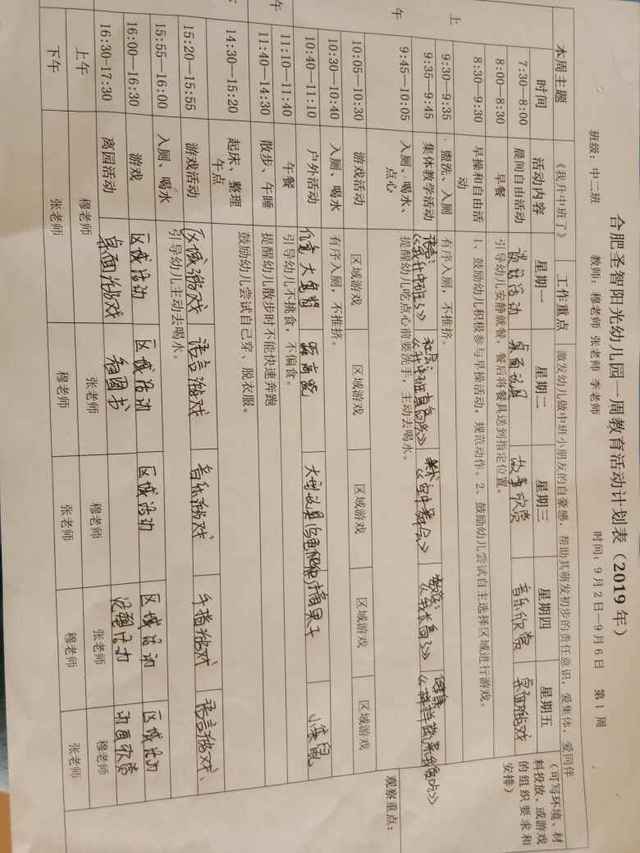 合肥圣智阳光幼儿园一周教育活动计划表（2019 年）
班级：中二班 教师：穆老师 张老师 李老师 时间：9月2日—9月6日 第1周
本周主题 《我升中班了》 工作重点 激发幼儿做中班小朋友的自豪感，帮助其萌发初步的责任意识，爱集体，爱同伴
时间 活动内容 星期一 星期二 星期三 星期四 星期五 （可写环境、材料投放，或游戏的组织要求和安排）
7:30—8:00 晨间自由活动 谈话活动 桌面玩具 故事欣赏 音乐欣赏 桌面游戏
8:00—8:30 早餐 引导幼儿安静就餐，餐后将餐具送到指定位置。
8:30—9:30 早操和自由活动 1、鼓励幼儿积极参与早操活动，规范动作。2、鼓励幼儿尝试自主选择区域进行游戏。
上午
9:30—9:35 盥洗、入厕 有序入厕，不推挤。
9:35—9:45 集体教学活动 语言：《我升中班了》 社会：
9:45—10:05 入厕、喝水、点心 提醒幼儿吃点心前要洗手，主动去喝水。
观察重点：
10:05—10:30 游戏活动 区域游戏 区域游戏 区域游戏 区域游戏 区域游戏
10:30—10:40 入厕、喝水 有序入厕，不推挤。
10:40—11:10 户外活动 大灰狼
11:10—11:40 午餐 引导幼儿不挑食，不偏食。
11:40—14:30 散步、午睡 提醒幼儿散步时不能快速奔跑
14:30—15:20 起床、整理 午点 鼓励幼儿尝试自己穿、脱衣服。
15:20—15:55 游戏活动 区域游戏 语言游戏 音乐游戏 手指游戏 语言游戏
15:55—16:00 入厕、喝水 引导幼儿主动去喝水。
16:00—16:30 游戏 区域活动 区域活动 区域活动 区域活动 区域活动
16:30—17:30 离园活动 桌面游戏 看图书 动画欣赏
上午 穆老师 张老师 穆老师 张老师 穆老师
下午 张老师 穆老师 张老师 穆老师 张老师